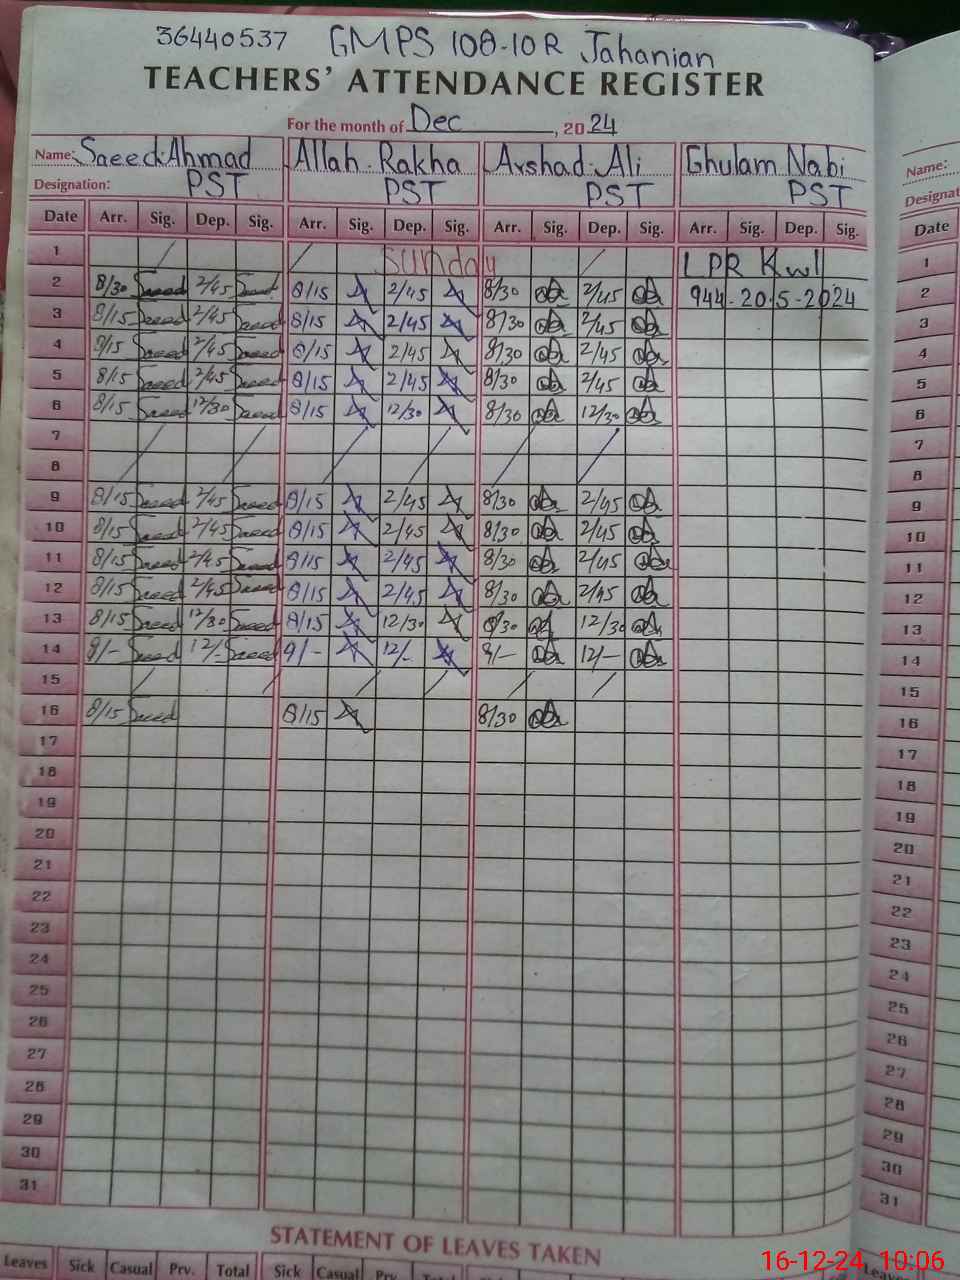 36440537 GMPS 108-10R Jahanian
TEACHERS' ATTENDANCE REGISTER
For the month of Dec, 2024
Name: Saeed Ahmad Allah Rakha Arshad Ali Ghulam Nabi Name:
Designation: PST PST PST PST
Date Arr. Sig. Dep. Sig. Arr. Sig. Dep. Sig. Arr. Sig. Dep. Sig. Arr. Sig. Dep. Sig. Date
1 Sunday LPR Kwl 1
2 8/30 Saeed 2/45 Saeed 8/15 2/45 8/30 2/45 944-20-5-2024 2
3 8/15 Saeed 2/45 Saeed 8/15 2/45 8/30 2/45 3
4 8/15 Saeed 2/45 Saeed 8/15 2/45 8/30 2/45 4
5 8/15 Saeed 2/45 Saeed 8/15 2/45 8/30 2/45 5
6 8/15 Saeed 12/30 Saeed 8/15 12/30 8/30 12/30 6
7 7
8 8
9 8/15 Saeed 2/45 Saeed 8/15 2/45 8/30 2/45 9
10 8/15 Saeed 2/45 Saeed 8/15 2/45 8/30 2/45 10
11 8/15 Saeed 2/45 Saeed 8/15 2/45 8/30 2/45 11
12 8/15 Saeed 2/45 Saeed 8/15 2/45 8/30 2/45 12
13 8/15 Saeed 12/30 Saeed 8/15 12/30 8/30 12/30 13
14 9/- Saeed 12/- Saeed 9/- 12/- 9/- 12/- 14
15 15
16 8/15 Saeed 8/15 8/30 16
17 17
18 18
19 19
20 20
21 21
22 22
23 23
24 24
25 25
26 26
27 27
28 28
29 29
30 30
31 31
STATEMENT OF LEAVES TAKEN
Leaves Sick Casual Prv. Total Sick Casual Prv. Total
16-12-24, 10:06